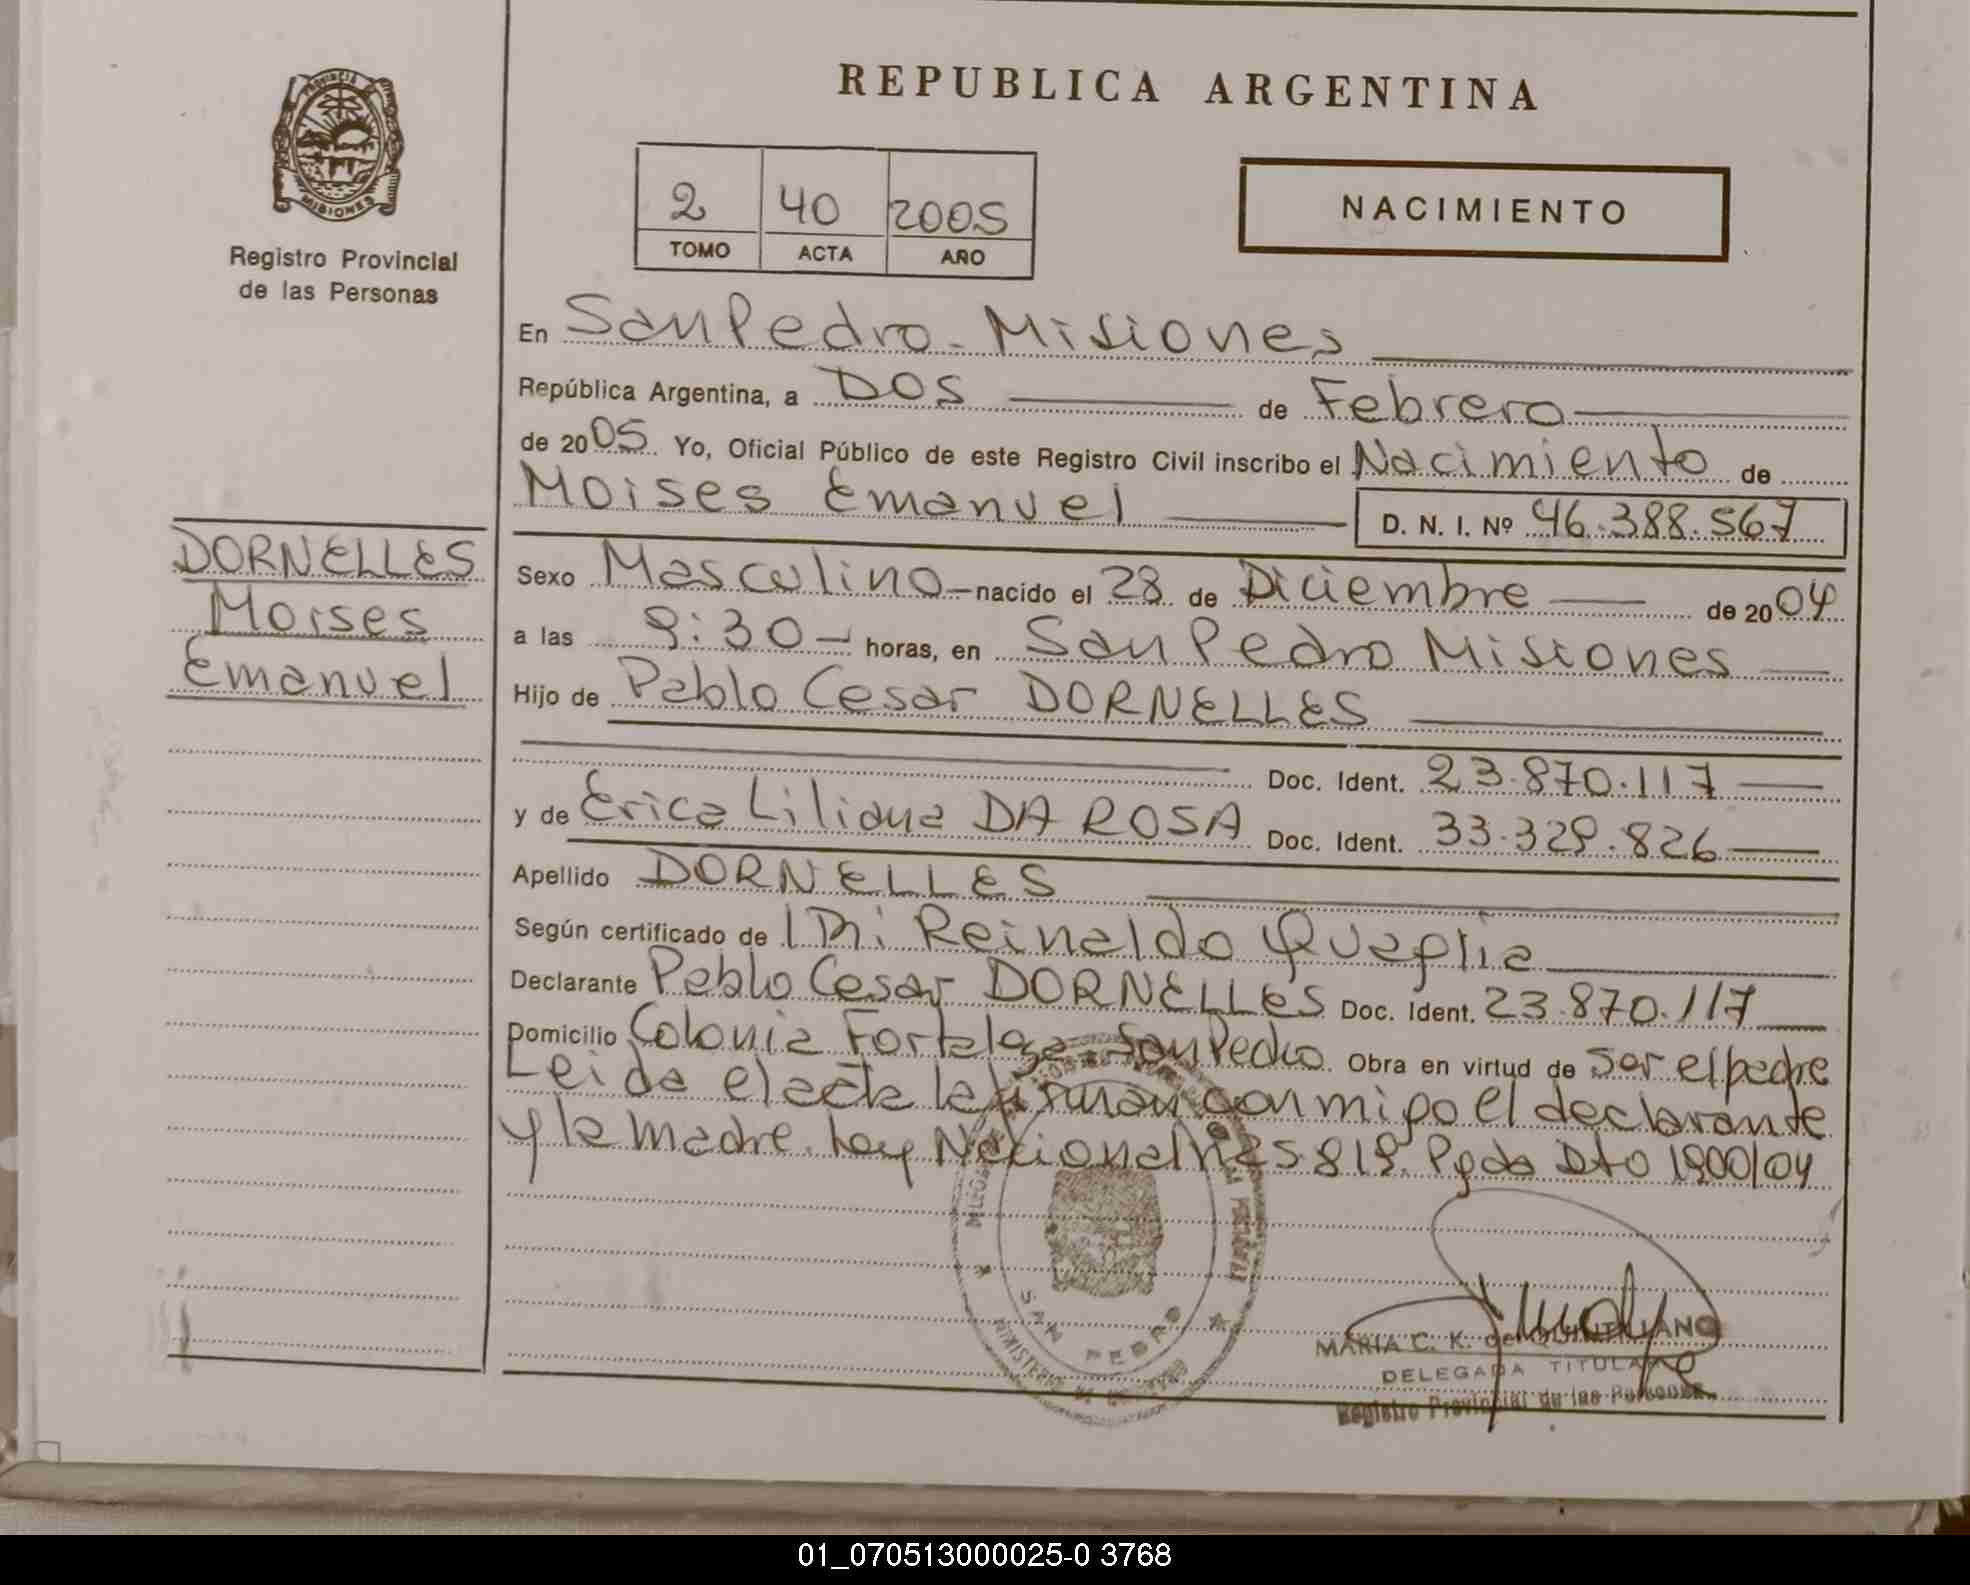 REPUBLICA ARGENTINA
PROVINCIA DE
MISIONES
Registro Provincial
de las Personas
2 40 2005
TOMO ACTA AÑO
NACIMIENTO
En San Pedro - Misiones
República Argentina, a DOS de Febrero
de 2005 Yo, Oficial Público de este Registro Civil inscribo el Nacimiento de
Moises Emanuel
D. N. I. Nº 46.388.567
DORNELLES
Moises
Emanuel
Sexo Masculino nacido el 28 de Diciembre de 2004
a las 9:30 horas, en San Pedro Misiones
Hijo de Pablo Cesar DORNELLES
Doc. Ident. 23.870.117
y de Erica Liliana DA ROSA Doc. Ident. 33.329.826
Apellido DORNELLES
Según certificado de Reinaldo Quaglia
Declarante Pablo Cesar DORNELLES Doc. Ident. 23.870.117
Domicilio Colonia San Pedro Obra en virtud de Ser el padre
Leida el acta la firman conmigo el declarante
y la madre. Ley Nacional 25.819. Dto 1900/04
SAN PEDRO
MINISTERIO
MARIA C. K. de QUINTILIANO
DELEGADA TITULAR
Registro Provincial de las Personas
01_070513000025-0 3768